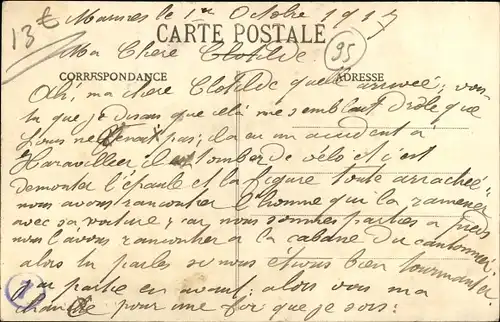 13€
Marines le 1er Octobre 1917
CARTE POSTALE
Ma Chere Clotilde
95
CORRESPONDANCE
ADRESSE
Ah, ma chere Clotilde quelle arrivée, vous
tu que je disais que cela me semblait drole que
Louis ne venait pas; il a eu un accident à
Haravilliers il est tomber de vélo et c'est
demonter l'épaule et la figure toute arrachée
nous avons rencontrer l'homme qui l'a ramener
avec sa voiture, car nous sommes parties à pieds
nous l'avons rencontrer a la cabane du cantonnier
alors tu parles si nous étions bien tourmenter
en avant alors vous ma
pour une foi que je sors:
1